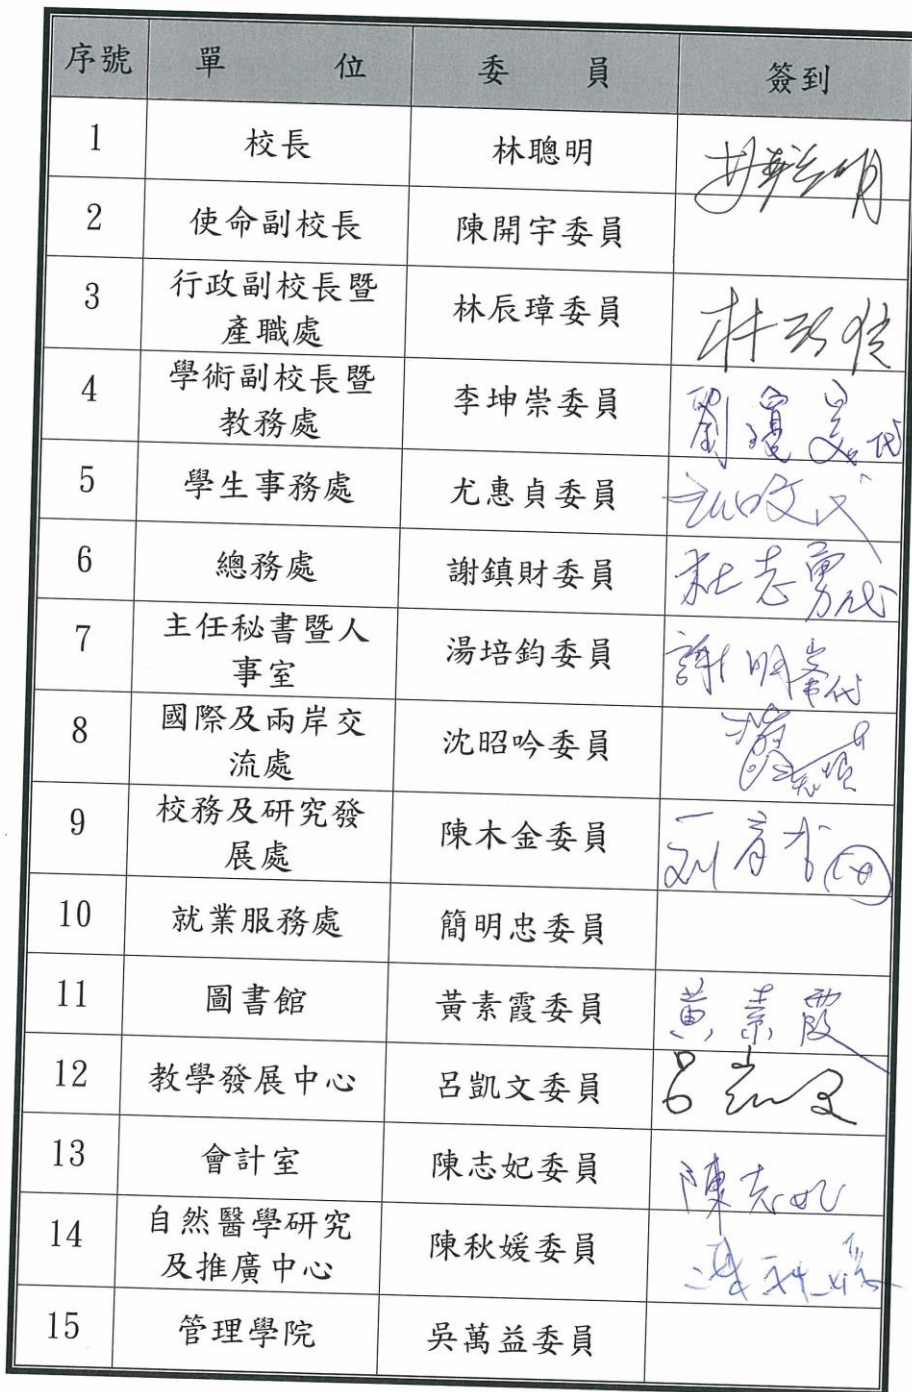 序號 單 位 委 員 簽到
1 校長 林聰明
2 使命副校長 陳開宇委員
3 行政副校長暨 林辰璋委員
產職處
4 學術副校長暨 李坤崇委員 劉瓊美代
教務處
5 學生事務處 尤惠貞委員
6 總務處 謝鎮財委員 杜志勇代
7 主任秘書暨人 湯培鈞委員 謝明崇代
事室
8 國際及兩岸交 沈昭吟委員
流處
9 校務及研究發 陳木金委員
展處
10 就業服務處 簡明忠委員
11 圖書館 黃素霞委員 黃素霞
12 教學發展中心 呂凱文委員 呂凱文
13 會計室 陳志妃委員 陳志妃
14 自然醫學研究 陳秋媛委員
及推廣中心
15 管理學院 吳萬益委員